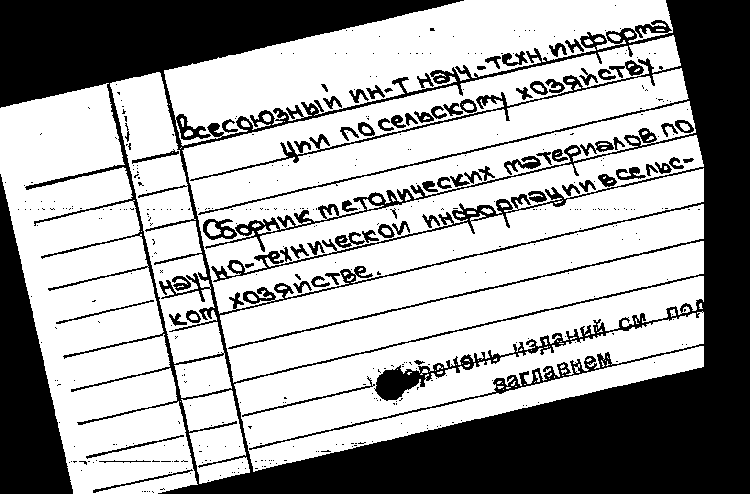 Всесоюзный ин-т науч.-техн. информа
ции по сельскому хозяйству.
Сборник методических материалов по
научно-технической информации в сельс-
ком хозяйстве.
изданий см. под
заглавием